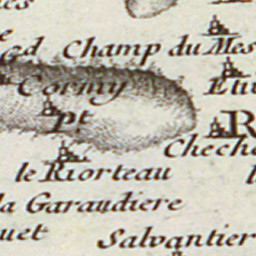 Gd Champ du Mes
Cormy
pt
R
Chech
le Riorteau
la Garaudiere
uet
Salvantier